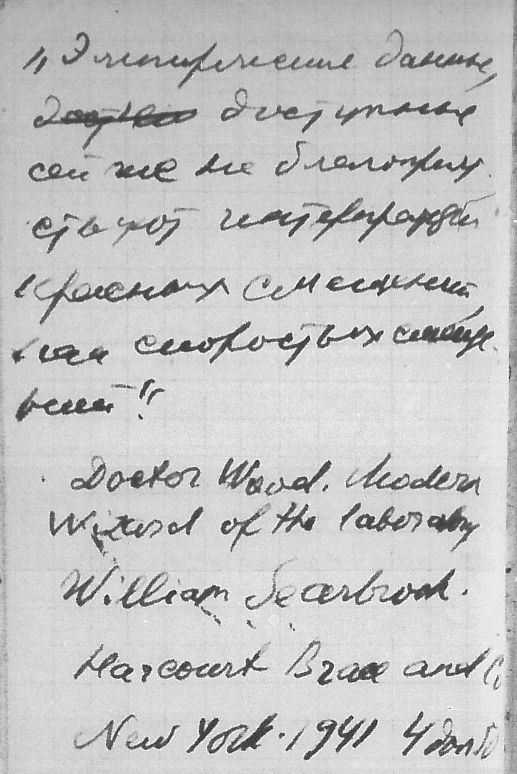 „Эмпирические данные,
доступные
сейчас не благоприят
ствуют интерпретации
красных смещений,
как скоростных смеще
ний"
Doctor Wood. Modern
Wizard of the laboratory
William Seabrook.
Harcourt Brace and Co
New York. 1941 4 долл